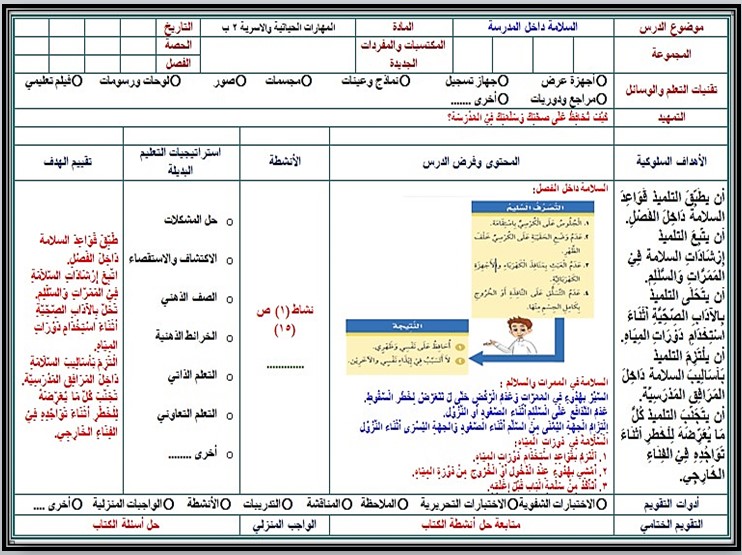 موضوع الدرس
السلامة داخل المدرسة
المادة
المهارات الحياتية والاسرية ٢ ب
التاريخ
المجموعة
المكتسبات والمفردات الجديدة
الحصة
الفصل
تقنيات التعلم والوسائل
Oأجهزة عرض Oجهاز تسجيل Oنماذج وعينات Oمجسمات Oصور Oلوحات ورسومات Oفيلم تعليمي
Oمراجع ودوريات Oأخرى .......
التمهيد
كَيْفَ تُحَافِظُ عَلَى صِحَّتِكَ وَسَلَامَتِكَ فِيْ المَدْرَسَة؟
الأهداف السلوكية
المحتوى وفرض الدرس
الأنشطة
استراتيجيات التعليم
البديلة
تقييم الهدف
أن يطبِّق التلميذ قَوَاعِدَ
السلامة دَاخِلَ الفَصْلِ.
أن يتَّبِعَ التلميذ
إرشَادَاتِ السلامة فِيْ
المَمَرَّاتِ وَالسُّلَّمِ.
أن يتَحَلَّى التلميذ
بِالآدَابِ الصِّحِّيَّةِ أَثْنَاءَ
اسْتِخْدَامِ دَوْرَاتِ المِيَاهِ.
أن يلْتَزِمَ التلميذ
بَأَسَالِيبِ السَّلَامَةِ دَاخِلَ
المَرَافِقِ المَدْرَسِيَّة.
أن يتَجَنَّبَ التلميذ كُلَّ
مَا يُعَرِّضُهُ لِلْخَطَرِ أثنَاءَ
تَوَاجُدِهِ فِيْ الفِنَاءِ
الخَارِجِي.
السلامة داخل الفصل:
التَّصَرُّفُ السَّلِيمُ
١. الجُلُوسُ عَلَى الْكُرْسِيِّ بِاسْتِقَامَة.
٢. عَدَمُ وَضْعِ الحَقِيبَةِ عَلَى الْكُرْسِيِّ خَلْفَ
الظَّهْرِ.
٣. عَدَمُ الْعَبَثِ بِمَنَافِذِ الْكَهْرَبَاءِ والأَجْهِزَةِ
الْكَهْرَبَائِيَّة.
٤. عَدَمُ التَّسَلُّقِ عَلَى النَّافِذَةِ أَوِ الخُرُوجِ
بِكَامِلِ الجِسْمِ مِنْهَا.
النَّتِيجَة
أُحَافِظُ عَلَى نَفْسِي وَظَهْرِي.
لَا أَتَسَبَّبُ فِي إِيْذَاءِ نَفْسِي وَالآخَرِين.
السلامة في الممرات والسلالم :
السَّيْرُ بِهُدُوءٍ فِي المَمَرَّاتِ وَعَدَمُ الرَّكْضِ حَتَّى لَ تتَعَرَّضَ لِخَطَرِ السُّقُوطِ.
عَدَمُ التَّدَافُعِ عَلَى السُّلَّمِ أَثْنَاءَ الصُّعُودِ أَو النُّزُوْلِ.
اِلْتِزَامُ الجِهَةِ اليُمْنَى مِنَ السُّلَّمِ أَثْنَاءَ الصُّعُودِ وَالجِهَةِ اليُسْرَى أَثْنَاءَ النُّزُوْلِ
السَّلَامَةُ فِي دَوْرَاتِ المِيَاهِ:
١. أَلْتَزِمُ بِقَوَاعِدِ اسْتِخْدَامِ دَوْرَاتِ المِيَاهِ.
٢. أَمْشِي بِهُدُوءٍ عِنْدَ الدُّخُولِ أَوْ الخُرُوجِ مِنْ دَوْرَةِ المِيَاهِ.
٣. أَتَأَكَّدُ مِنْ سَلَامَةِ البَابِ قَبْلَ إِغْلَاقِهِ.
نشاط (١) ص
(١٥)
............
حل المشكلات
الاكتشاف والاستقصاء
الصف الذهني
الخرائط الذهنية
التعلم الذاتي
التعلم التعاوني
أخرى ........
طَبِّقْ قَوَاعِدَ السلامة
دَاخِلَ الفَصْلِ.
اتَّبِعْ إِرْشَادَاتِ السَّلَامَةِ
فِيْ المَمَرَّاتِ وَالسُّلَّمِ.
تَحَلَّ بِالآدَابِ الصِّحِّيَّةِ
أَثْنَاءَ اسْتِخْدَامِ دَوْرَاتِ
المِيَاهِ.
الْتَزِمْ بَأَسَالِيبِ السَّلَامَةِ
دَاخِلَ المَرَافِقِ المَدْرَسِيَّة.
تَجَنَّبْ كُلَّ مَا يُعَرِّضُهُ
لِلْخَطَرِ أَثْنَاءَ تَوَاجُدِهِ فِيْ
الفِنَاءِ الخَارِجِي.
أدوات التقويم
Oالاختبارات الشفوية Oالاختبارات التحريرية Oالملاحظة Oالمناقشة Oالتدريبات Oالأنشطة Oالواجبات المنزلية Oأخرى ....
التقويم الختامي
متابعة حل أنشطة الكتاب
الواجب المنزلي
حل أسئلة الكتاب